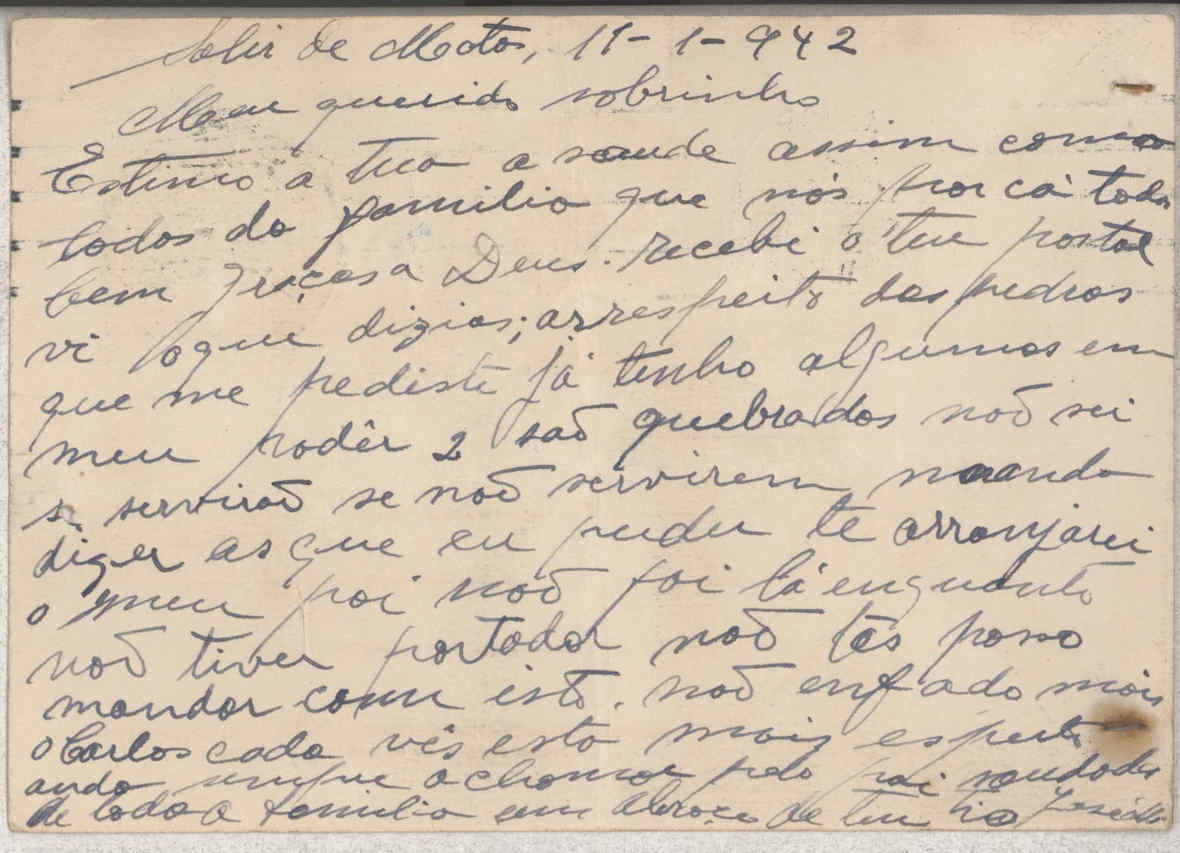 Solir de Matos, 11-1-942
Meu querido sobrinho
Estimo a tua a saude assim como
todos da familia que nós por cá todos
bem graças a Deus. recebi o teu postal
vi oque dizias; arrespeito das pedras
que me pediste já tenho algumas em
meu podêr 2 saõ quebrados naõ sei
si serviraõ se naõ servirem manda
dizer as que eu puder te arranjarei
o meu pai naõ foi lá enquanto
naõ tiver portador naõ tas posso
mandar com isto. naõ enfado mais
o Carlos cada vês esta mais esperto
anda sempre a chamar pelo pai saudades
de toda a familia um abraço de teu tio